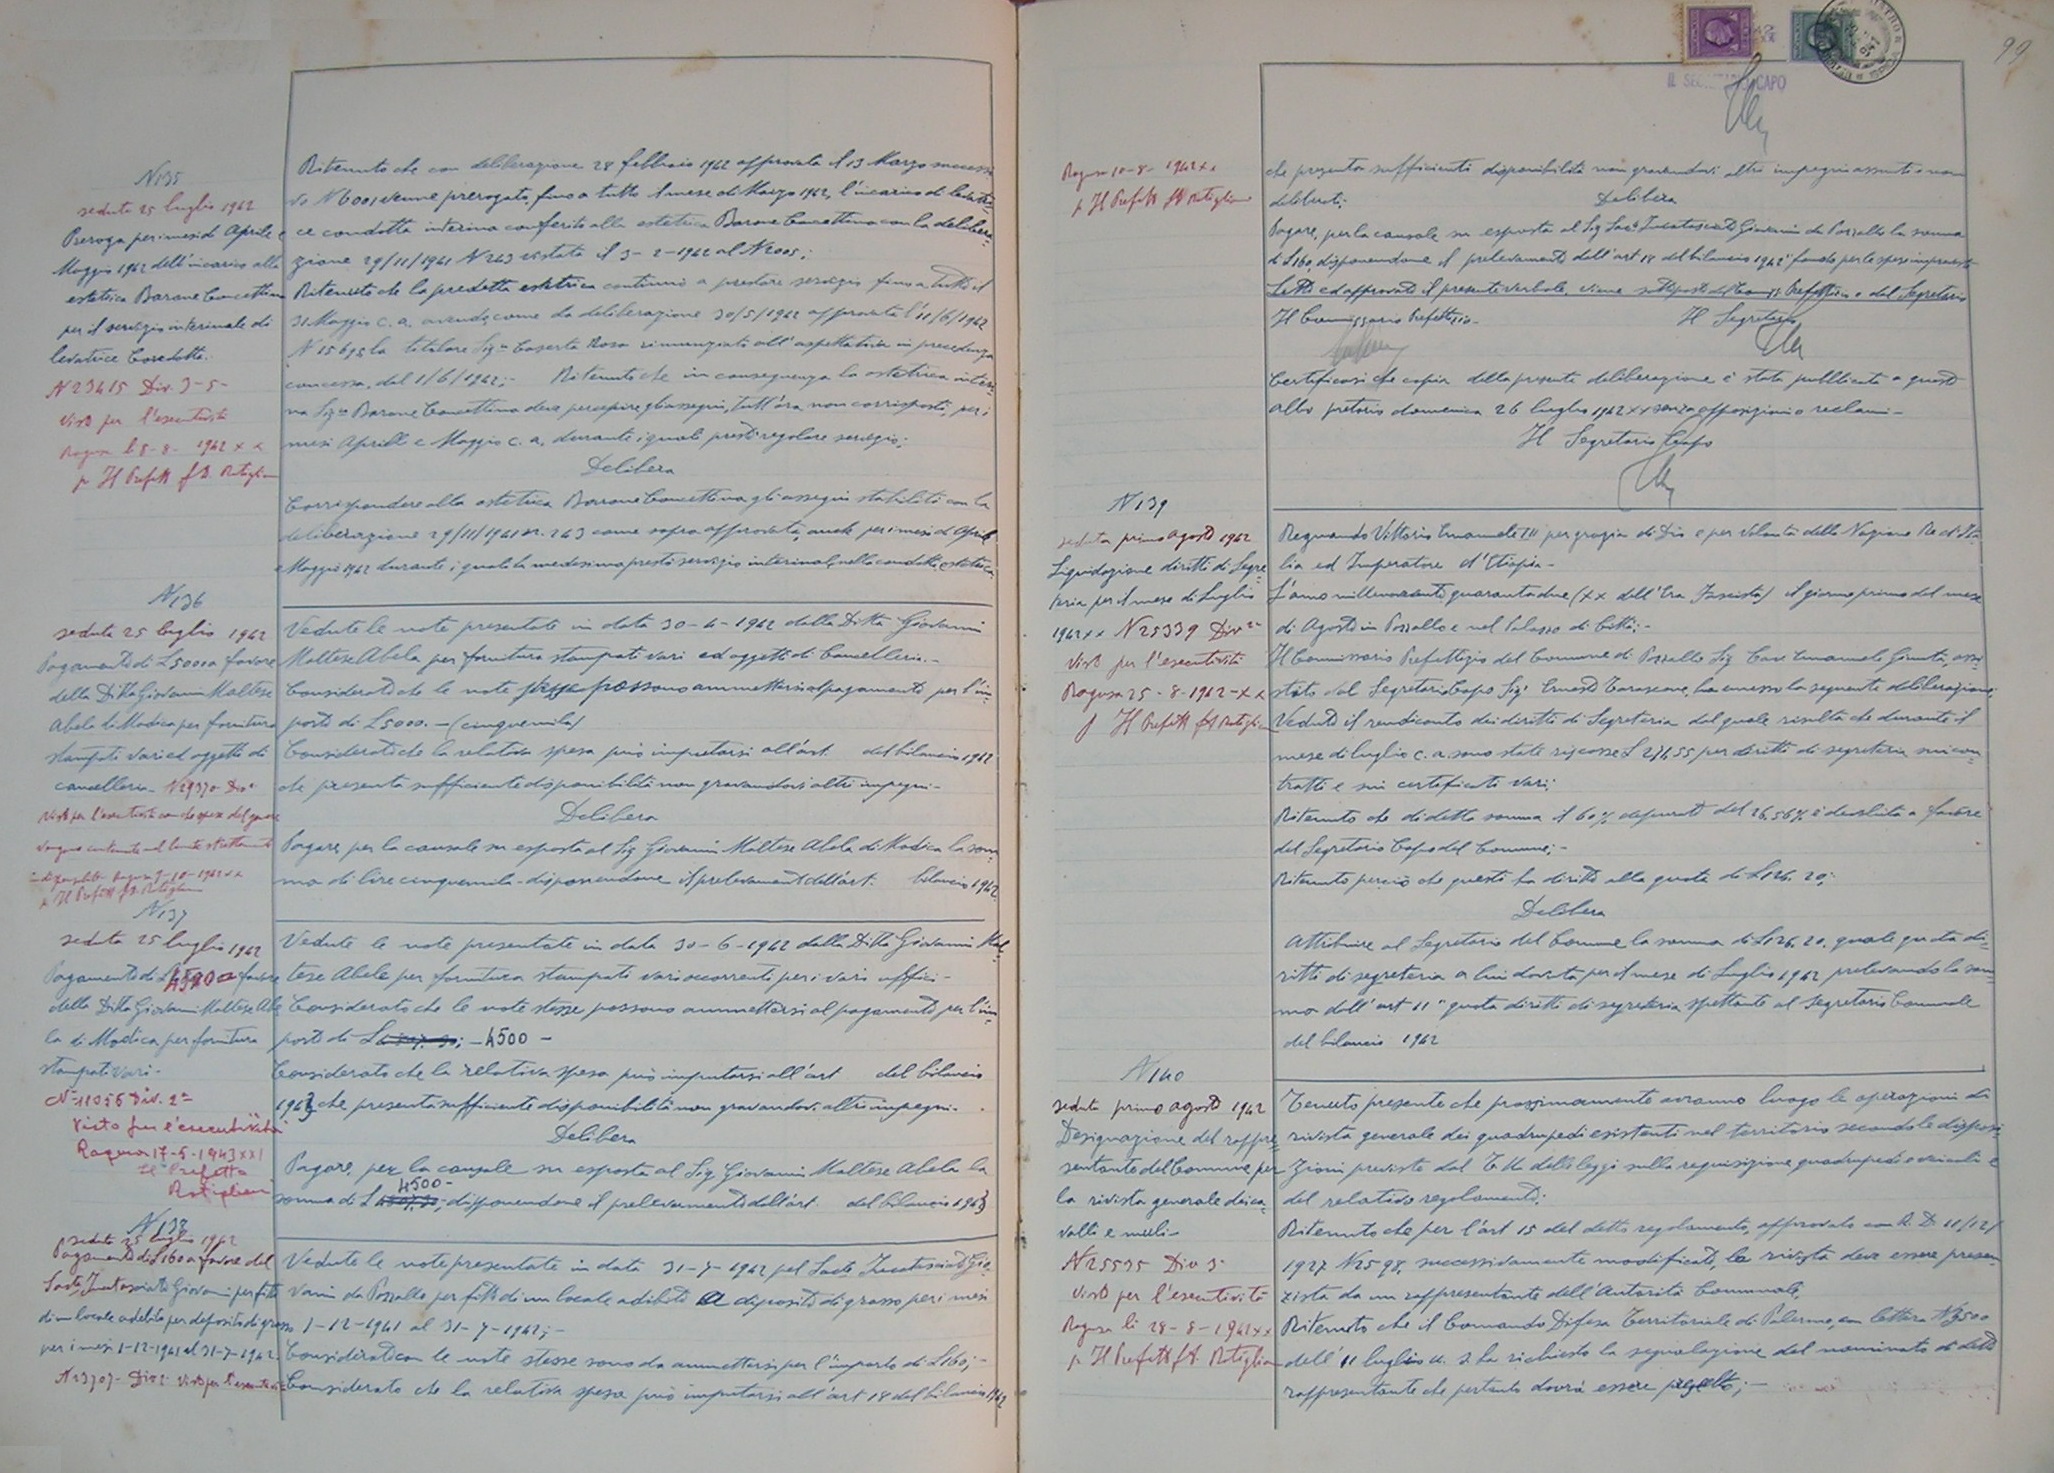 N 135
seduta 25 luglio 1942
Proroga per i mesi di Aprile e
Maggio 1942 dell'incarico alla
ostetrica Barone Concettina
per il servizio interinale di
levatrice Condotta.
N 23415 Div. 3-5-
Visto per l'esecutività
Ragusa li 8-8- 1942 x x
p Il Prefetto
Ritenuto che con deliberazione 28 febbraio 1942 approvata il 13 Marzo successi
vo N 6001 venne prorogato, fino a tutto il mese di Marzo 1942, l'incarico di levatri=
ce condotta interina conferito alla ostetrica Barone Concettina con la delibera=
zione 29/11/1941 N 243 vistata il 3-2-1942 al N 2005;
Ritenuto che la predetta ostetrica continuò a prestare servizio fino a tutto il
31 Maggio c. a. avendo, come da deliberazione 30/5/1942 approvata l'11/6/1942
N 15695 la titolare Sig.ra Caserta Rosa rinunziato all'aspettativa in precedenza
concessa, dal 1/6/1942;- Ritenuto che in conseguenza la ostetrica interi=
na Sig.ra Barone Concettina deve percepire gli assegni, tutt'ora non corrisposti, per i
mesi Aprile e Maggio c. a. durante i quali prestò regolare servizio;
Delibera
Corrispondere alla ostetrica Barone Concettina gli assegni stabiliti con la
deliberazione 29/11/1941 n. 243 come sopra approvata, anche per i mesi di Aprile
e Maggio 1942 durante i quali la medesima prestò servizio interinale nella condotta ostetrica
N 136
seduta 25 luglio 1942
Pagamento di £ 5000 a favore
della Ditta Giovanni Maltese
Abela di Modica per fornitura
stampati vari ed oggetti di
cancelleria - N 29370 Div.
Vedute le note presentate in data 30-4-1942 dalla Ditta Giovanni
Maltese Abela per fornitura stampati vari ed oggetti di Cancelleria.-
Considerato che le note possono ammettersi al pagamento per l'im=
porto di £ 5000. - (cinquemila)
Considerato che la relativa spesa può imputarsi all'art. del bilancio 1942
che presenta sufficiente disponibilità non gravandovi altri impegni-
Delibera
Pagare, per la causale su esposta al Sig Giovanni Maltese Abela di Modica la som=
ma di lire cinquemila - disponendone il prelevamento dall'art. bilancio 1942
N 137
seduta 25 luglio 1942
Pagamento di £ 4500 a favore
della Ditta Giovanni Maltese Abe
la di Modica per fornitura
stampati vari-
N- 11056 Div. 2ª
Visto per l'esecutività
Ragusa 17-5-1943 XXI
Il Prefetto
Vedute le note presentate in data 30-6-1942 dalla Ditta Giovanni Mal=
tese Abela per fornitura stampati vari occorrenti per i vari uffici-
Considerato che le note stesse possono ammettersi al pagamento per l'im=
porto di £ - 4500 -
Considerato che la relativa spesa può imputarsi all'art del bilancio
1943 che presenta sufficiente disponibilità non gravandovi altri impegni-
Delibera
Pagare, per la causale su esposta al Sig Giovanni Maltese Abela la
somma di £ 4500- disponendone il prelevamento dall'art. del bilancio 1943
N 138
seduta 25 luglio 1942
Pagamento di £ 160 a favore del
Giovanni per fitto
di un locale adibito per deposito di grasso
per i mesi 1-12-1941 al 31-7-1942.
N 23707- Div 2 Visto per l'esecutività
Vedute le note presentate in data 31-7-1942 pel Gio=
vanni da Pozzallo per fitto di un locale adibito a deposito di grasso per i mesi
1-12-1941 al 31-7-1942;-
Considerato che le note stesse sono da ammettersi per l'importo di £ 160;-
Considerato che la relativa spesa può imputarsi all'art 18 del bilancio 1942
99
IL SEGRETARIO CAPO
Ragusa 10-8- 1942 xx
p Il Prefetto
che presenta sufficiente disponibilità non gravandovi altri impegni assunti o non
deliberati;
Delibera
Pagare, per la causale su esposta al Sig Giovanni da Pozzallo la somma
di £ 160, disponendone il prelevamento dall'art 18 del bilancio 1942 "fondo per le spese impreviste
Letto ed approvato il presente verbale, viene sottoposto dal Comm. Prefettizio e dal Segretario
Il Commissario Prefettizio- Il Segretario
Certificasi che copia della presente deliberazione è stata pubblicata a questo
albo pretorio domenica 26 luglio 1942 xx senza opposizioni o reclami-
Il Segretario Capo
N 139
seduta primo agosto 1942
Liquidazione diritti di Segre=
teria per il mese di Luglio
1942 xx N 25339 Div 2ª
Visto per l'esecutività
Ragusa 25-8-1942-XX
p Il Prefetto
Regnando Vittorio Emanuele III per grazia di Dio e per volontà della Nazione Re d'Ita=
lia ed Imperatore d'Etiopia-
L'anno millenovecento quarantadue (XX dell'Era Fascista) il giorno primo del mese
di Agosto in Pozzallo e nel Palazzo di Città;-
Il Commissario Prefettizio del Comune di Pozzallo Sig Cav. Emanuele Giunta, assi=
stito dal Segretario Capo Sig. Ernesto Tarascone, ha emesso la seguente deliberazione
Veduto il rendiconto dei diritti di Segreteria dal quale risulta che durante il
mese di luglio c. a. sono state riscosse £ 271,55 per diritti di segreteria sui con=
tratti e sui certificati vari;
Ritenuto che di detta somma il 60% depurato del 26,56% è devoluta a favore
del Segretario Capo del Comune;-
Ritenuto perciò che questi ha diritto alla quota di £ 126, 20;
Delibera
Attribuire al Segretario del Comune la somma di £ 126, 20, quale quota di=
ritti di segreteria a lui dovuta per il mese di Luglio 1942 prelevando la som=
ma dall'art 11 "quota diritti di segreteria spettante al Segretario Comunale
del bilancio 1942
N 140
seduta primo agosto 1942
Designazione del rappre=
sentante del Comune per
la rivista generale dei ca=
valli e muli-
N 25535 Div 3ª
Visto per l'esecutività
Ragusa li 28-8-1942 xx
p Il Prefetto
Tenuto presente che prossimamente avranno luogo le operazioni di
rivista generale dei quadrupedi esistenti nel territorio secondo le disposi=
zioni previste dal T. U. delle leggi sulla requisizione quadrupedi e veicoli e
del relativo regolamento;
Ritenuto che per l'art 15 del detto regolamento, approvato con R. D. 11/12/
1927 N 2598, successivamente modificato, la rivista deve essere presen=
ziata da un rappresentante dell'Autorità Comunale,
Ritenuto che il Comando Difesa Territoriale di Palermo, con lettera N 3500
dell'11 luglio u. s. ha richiesto la segnalazione del nominativo di detto
rappresentante che pertanto dovrà essere prescelto;-